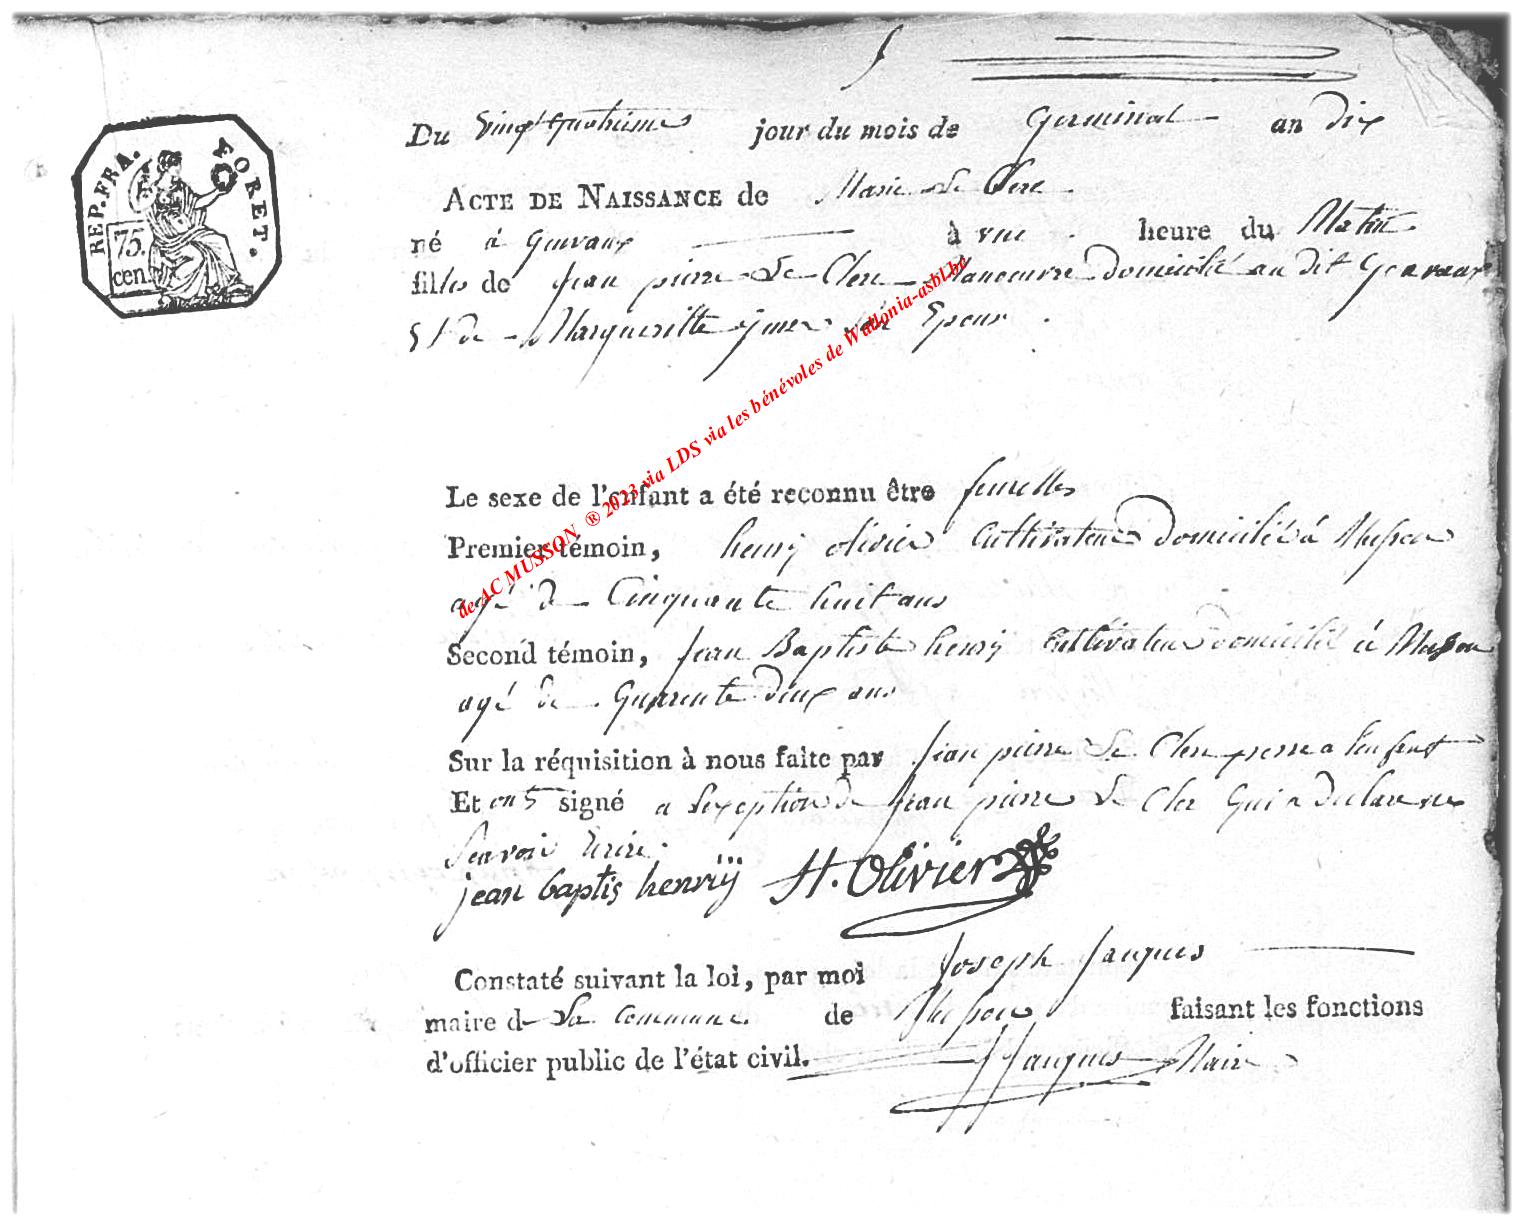 REP. FRA.
FORET.
75.
cen.
Du Vingt quatrieme jour du mois de Germinal an dix
ACTE DE NAISSANCE de Marie Le Clerc
né á Gervaux à une heure du Matin
filles de Jean pierre Le Clerc Manoeuvre Domicilié au dit Gervaux
Et de Margueritte son Epous
Le sexe de l'enfant a été reconnu être femelles
Premier témoin, henrÿ olivier Cultivateur Domicilié á Musson
agé de Cinquante huit ans
Second témoin, Jean Baptiste henrÿ Cultivateur domicilié á Musson
agé de Quarente deux ans
Sur la réquisition à nous faite par Jean pierre Le Clerc perre a l'enfent
Et ont signé a l'exeption de Jean pierre Le Cler Qui a declare ne
Scavoir Ecrire.
jean baptis henrÿ H. Olivier
Constaté suivant la loi, par moi Joseph Jaques
maire de La Commune de Musson faisant les fonctions
d'officier public de l'état civil. JJaques Maire
de AC MUSSON ® 2023 via LDS via les bénévoles de Wallonia-asbl.be